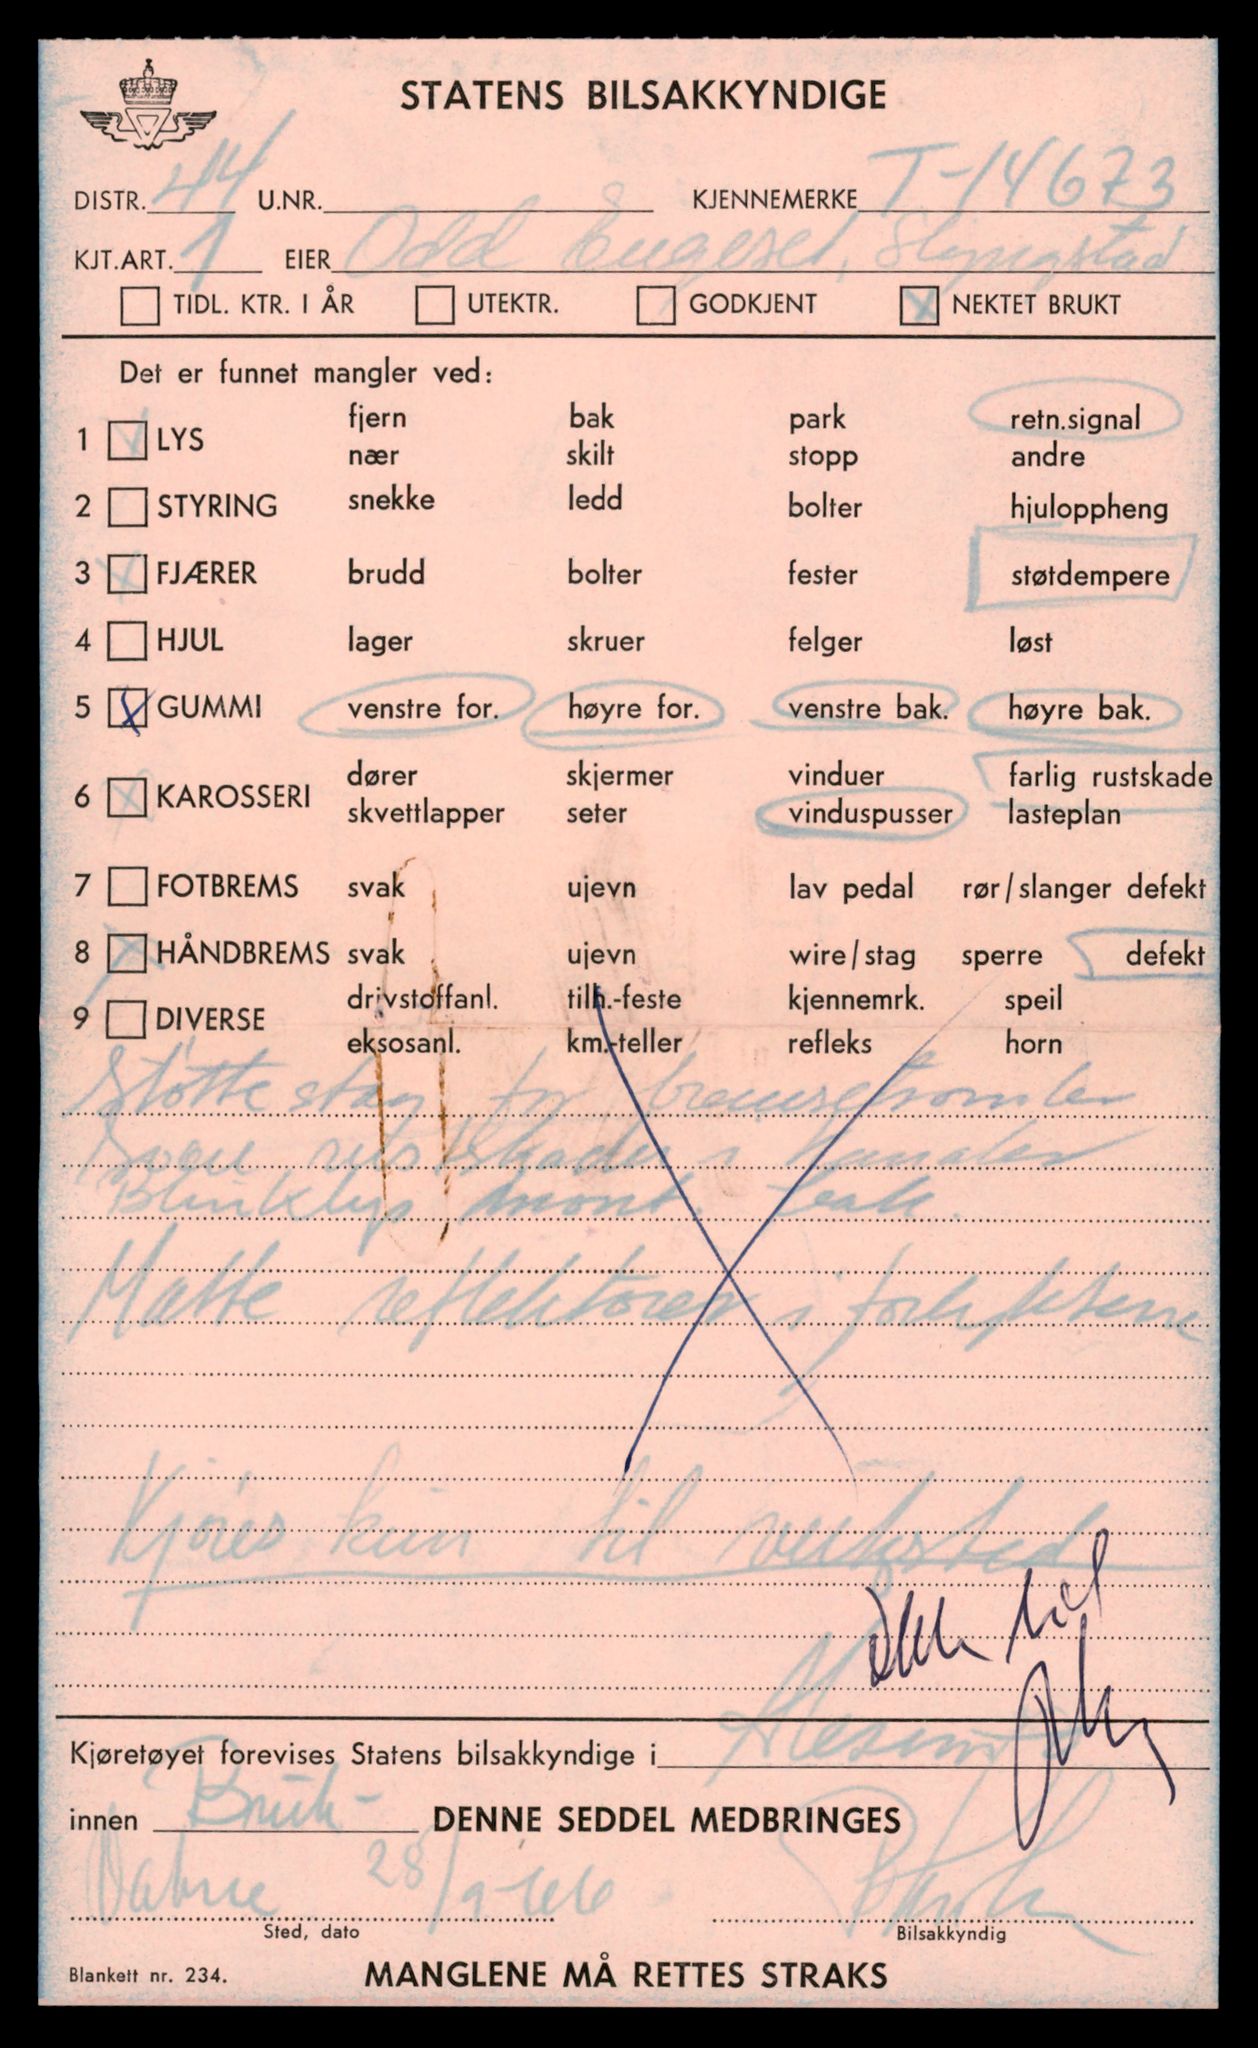 STATENS BILSAKKYNDIGE
DISTR. 44 U.NR. KJENNEMERKE T-14673
KJT.ART. 1 EIER Odd Engeset, Slyngstad
TIDL. KTR. I ÅR UTEKTR. GODKJENT X NEKTET BRUKT
Det er funnet mangler ved:
fjern bak park retn.signal
1 X LYS
nær skilt stopp andre
2 STYRING snekke ledd bolter hjuloppheng
3 X FJÆRER brudd bolter fester støtdempere
4 HJUL lager skruer felger løst
5 X GUMMI venstre for. høyre for. venstre bak. høyre bak.
dører skjermer vinduer farlig rustskade
6 X KAROSSERI
skvettlapper seter vinduspusser lasteplan
7 FOTBREMS svak ujevn lav pedal rør/slanger defekt
8 X HÅNDBREMS svak ujevn wire/stag sperre defekt
drivstoffanl. tilh.-feste kjennemrk. speil
9 DIVERSE
eksosanl. km.-teller refleks horn
Støttestag for bremsetromler
rustskader i kanaler
Blinklys mont. bak.
Matte reflektorer i forlyktene
Kjøres kun til verksted
Kjøretøyet forevises Statens bilsakkyndige i
innen Bruk- DENNE SEDDEL MEDBRINGES
28/9-66
Sted, dato Bilsakkyndig
Blankett nr. 234. MANGLENE MÅ RETTES STRAKS